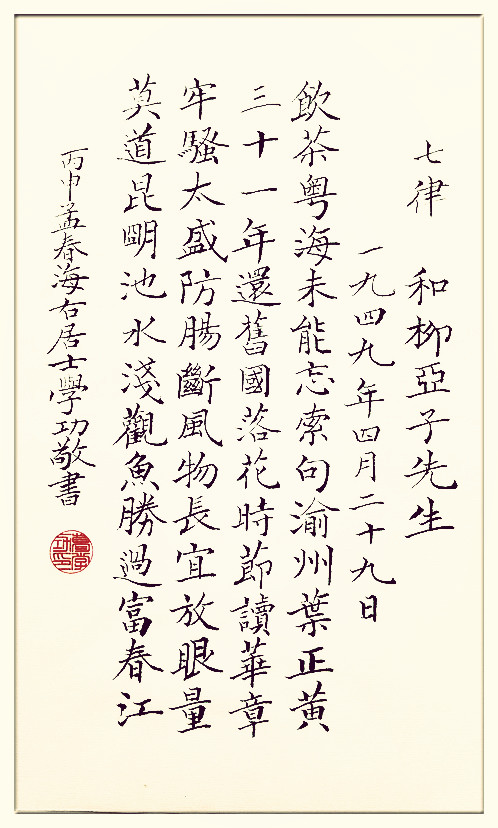 七律 和柳亞子先生
一九四九年四月二十九日
飲茶粵海未能忘索句渝州葉正黃
三十一年還舊國落花時節讀華章
牢騷太盛防腸斷風物長宜放眼量
莫道昆明池水淺觀魚勝過富春江
丙申孟春海右居士學功敬書